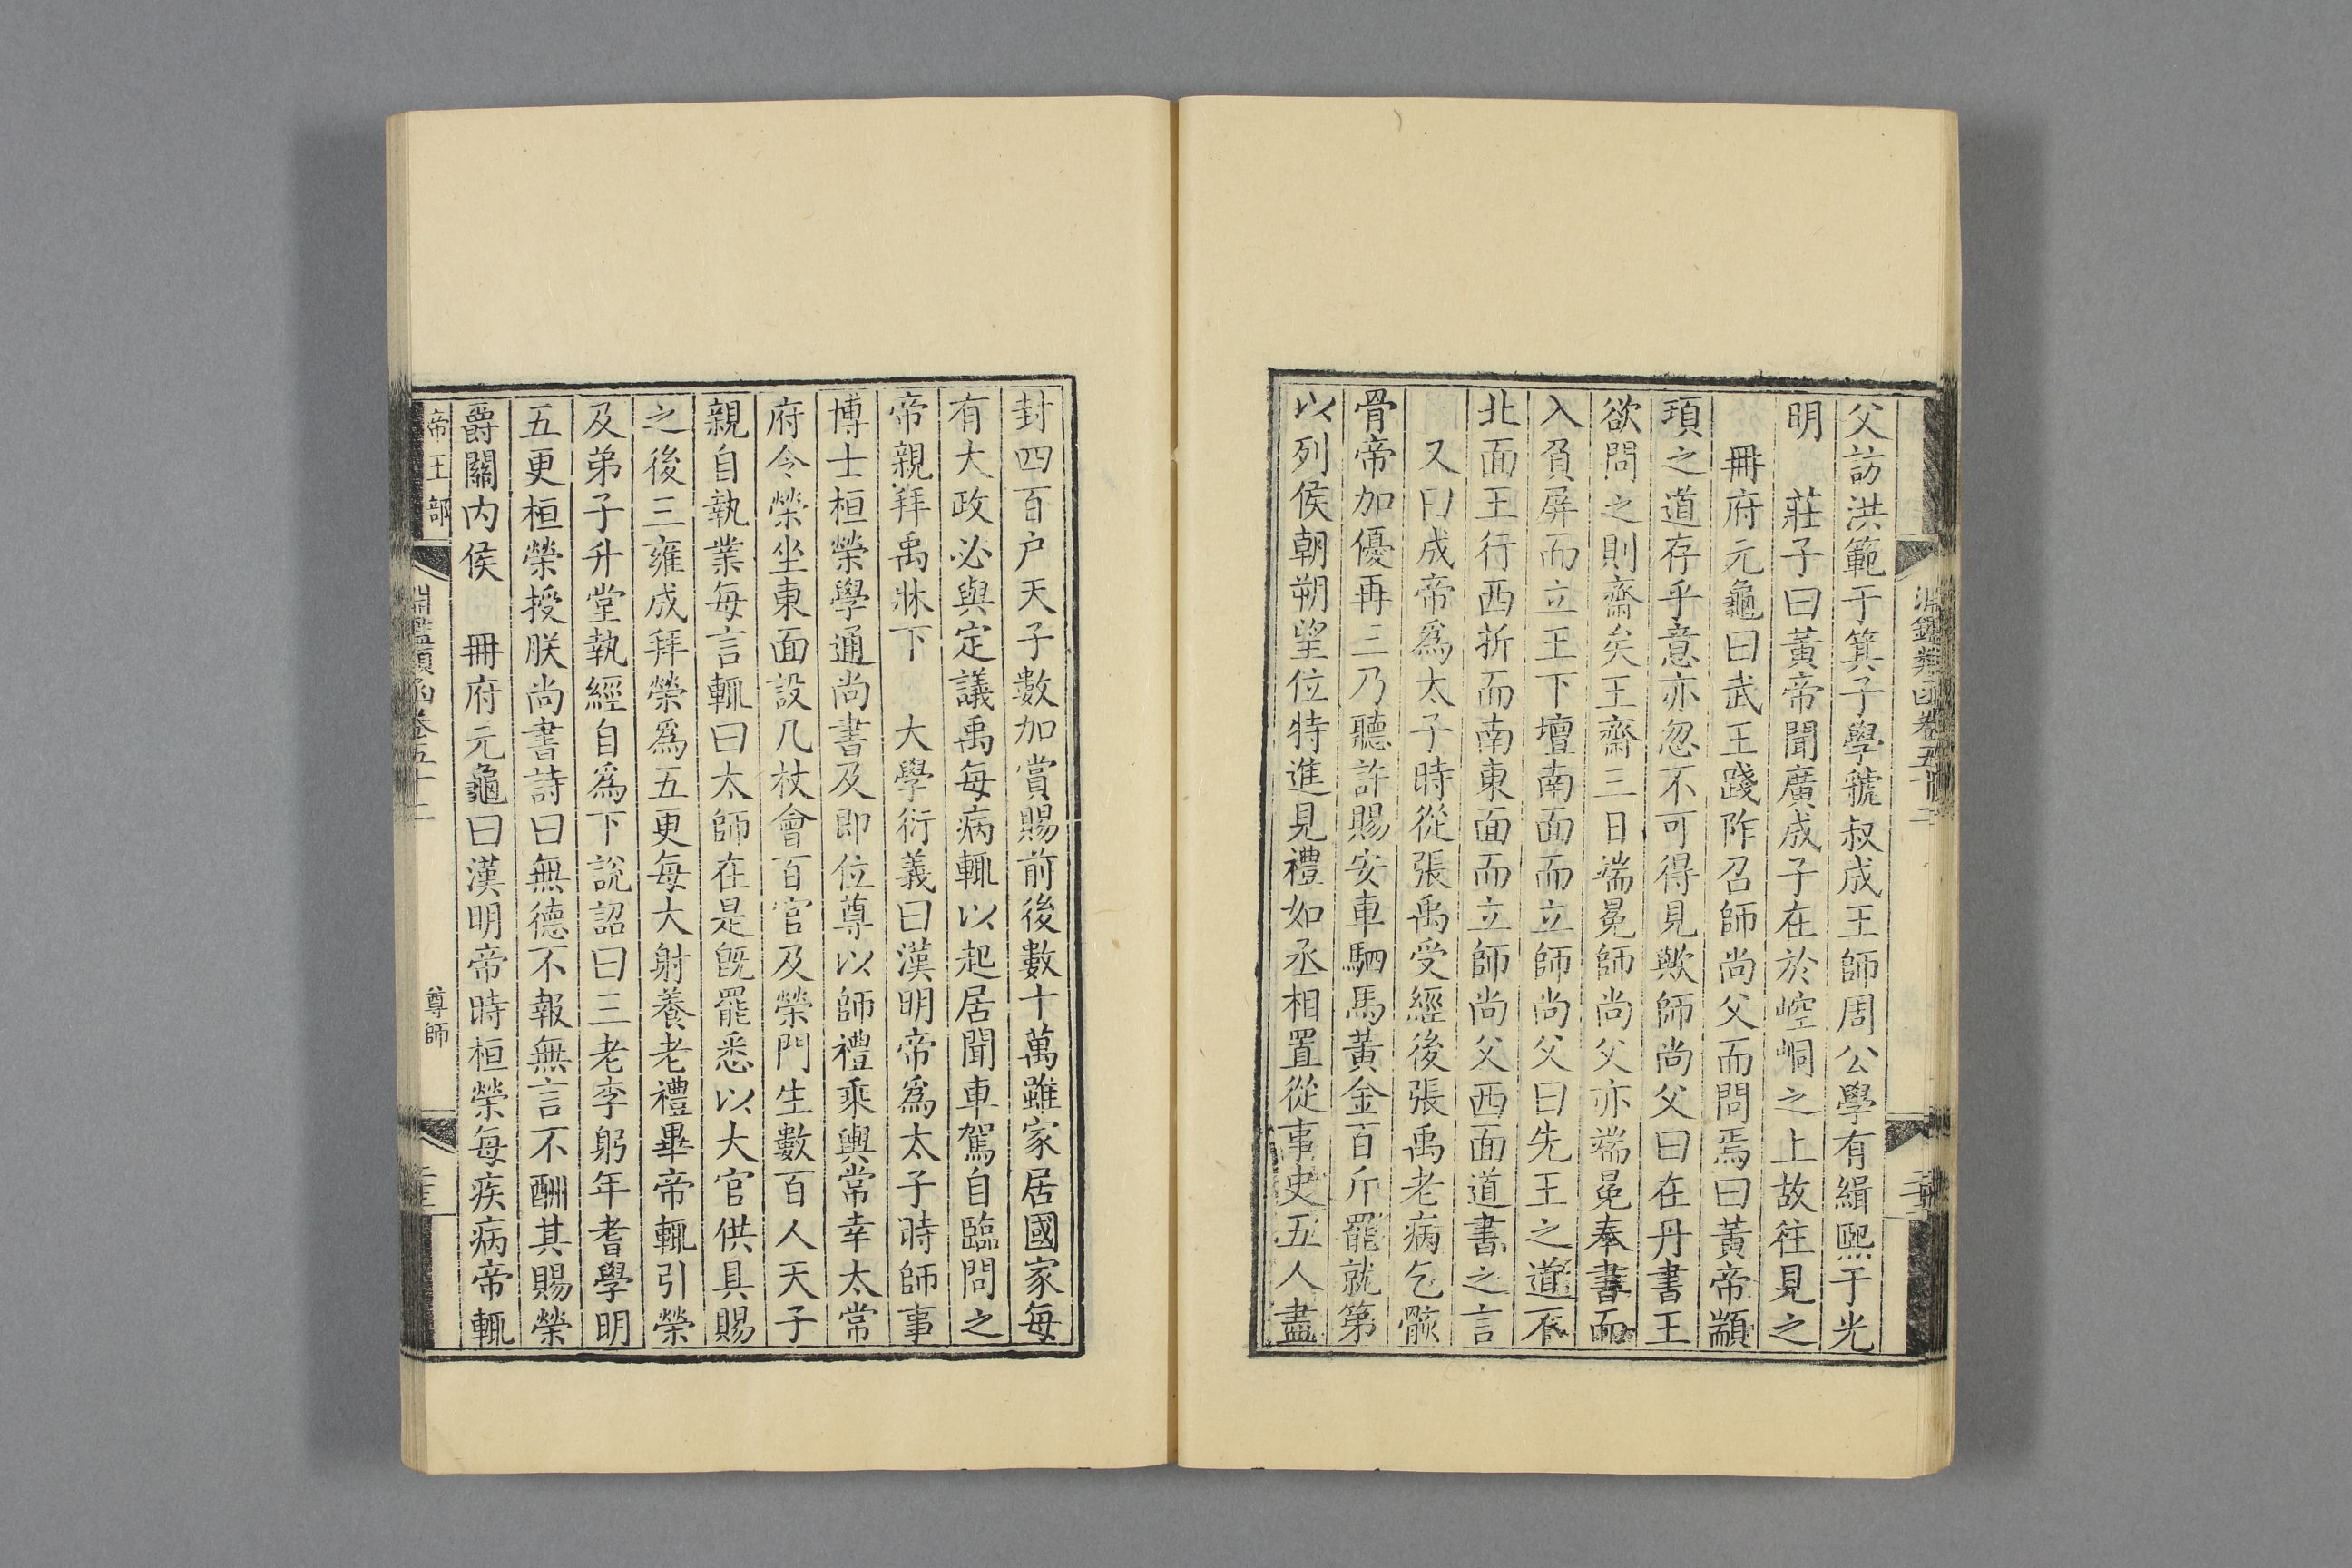 父訪洪範于箕子學虢叔成王師周公學有緝熙于光
明　莊子曰黃帝聞廣成子在於崆峒之上故往見之
冊府元龜曰武王踐阼召師尚父而問焉曰黃帝顓
頊之道存乎意亦忽不可得見歟師尚父曰在丹書王
欲問之則齋矣王齋三日端冕師尚父亦端冕奉書而
入負屏而立王下壇南面而立師尚父曰先王之道不
北面王行西折而南東面而立師尚父西面道書之言
又曰成帝爲太子時從張禹受經後張禹老病乞骸
骨帝加優再三乃聽許賜安車駟馬黃金百斤罷就第
以列侯朝朔望位特進見禮如丞相置從事史五人盡
封四百户天子數加賞賜前後數十萬雖家居國家每
有大政必與定議禹每病輒以起居聞車駕自臨問之
帝親拜禹牀下　大學衍義曰漢明帝爲太子時師事
博士桓榮學通尚書及即位尊以師禮乘輿常幸太常
府令榮坐東面設几杖會百官及榮門生數百人天子
親自執業每言輒曰太師在是旣罷悉以大官供具賜
之後三雍成拜榮爲五更每大射養老禮畢帝輒引榮
及弟子升堂執經自爲下說詔曰三老李躬年耆學明
五更桓榮授朕尚書詩曰無德不報無言不酬其賜榮
爵關内侯　冊府元龜曰漢明帝時桓榮每疾病帝輒
帝王部　淵鑑類函卷五十二　尊師